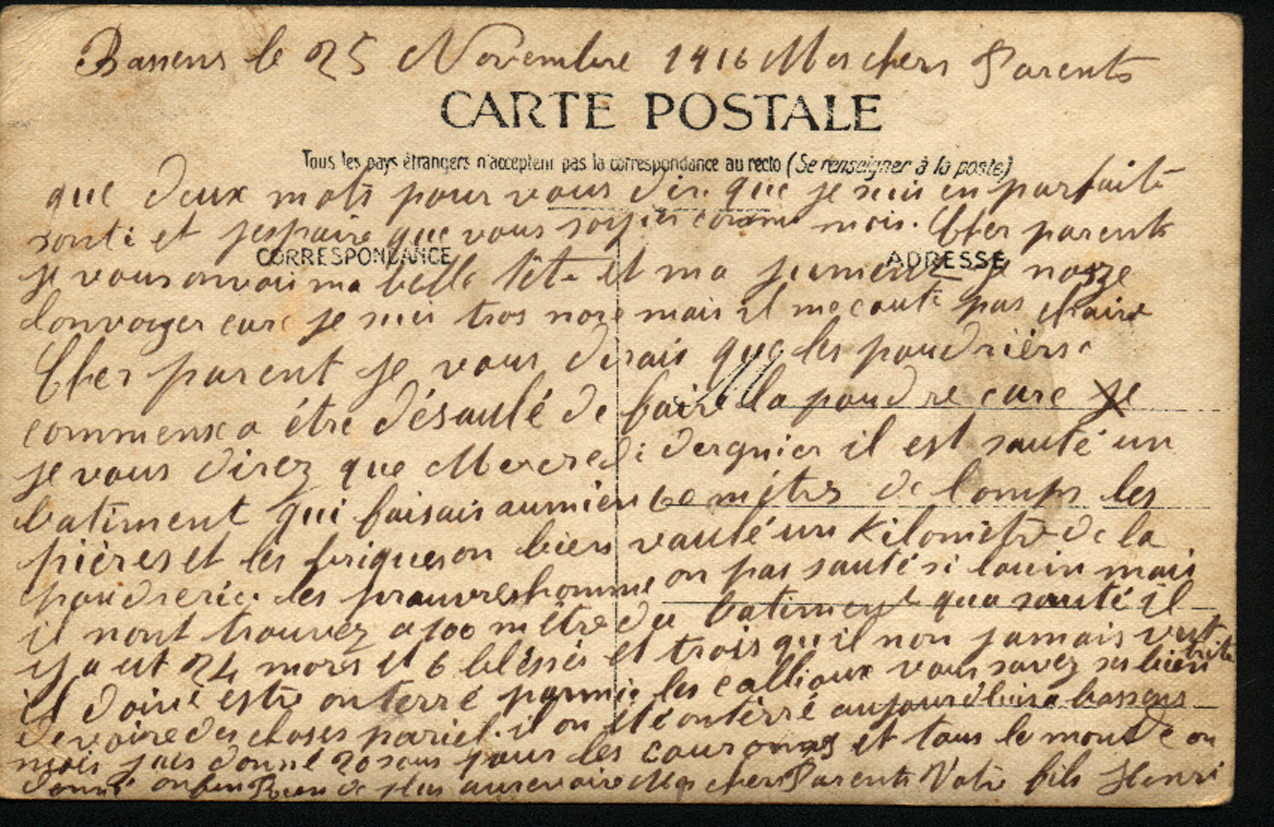 Bassens le 25 Novembre 1916 Mes chers Parents
CARTE POSTALE
Tous les pays étrangers n'acceptent pas la correspondance au recto (Se renseigner à la poste)
que deux mots pour vous dire que je suis en parfaite
sonté et jespaire que vous soyier comme mois. Cher parents
CORRESPONDANCE
ADRESSE
je vous onvoi ma belle tête et ma je nosse
donvoyer care je suis tros nore mais il me coute pas chaire
Cher parent je vous dirais que les poudrièrs
commensea étre désaulé de faire la poudre care je
je vous direz que Mercredi dergnier il est sauté un
batiment qui faisais aumien 60 mètres de lomps les
pières et les briques on bien vauté un Kilomètre de la
poudrerie. les prauvres homme on pas sauté si louin mais
il nont trouvez a 100 mètre du batiment qua sauté il
y a ut 24 mors et 6 blésses et trois qu'il non jamais vut
il doive estre onterré parmie les callioux vous savez ses bien trite
devoire des choses pariel. il on été onterré aujourdhuire a bassens
mois jais donné 20 sous pour les couronnes et tous le monde on
donné onfin Rien de plus aurevoire Mes chers Parents Votre fils Henri